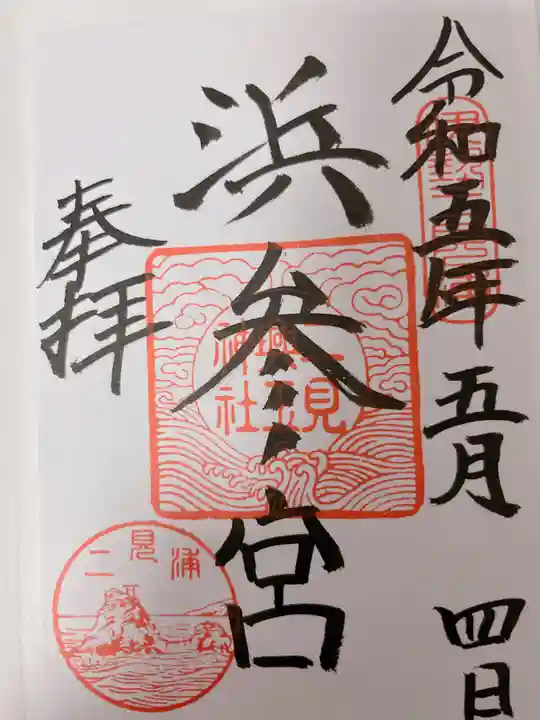 令和五年五月四日
浜参宮
奉拝
二見
興玉
神社
二見浦